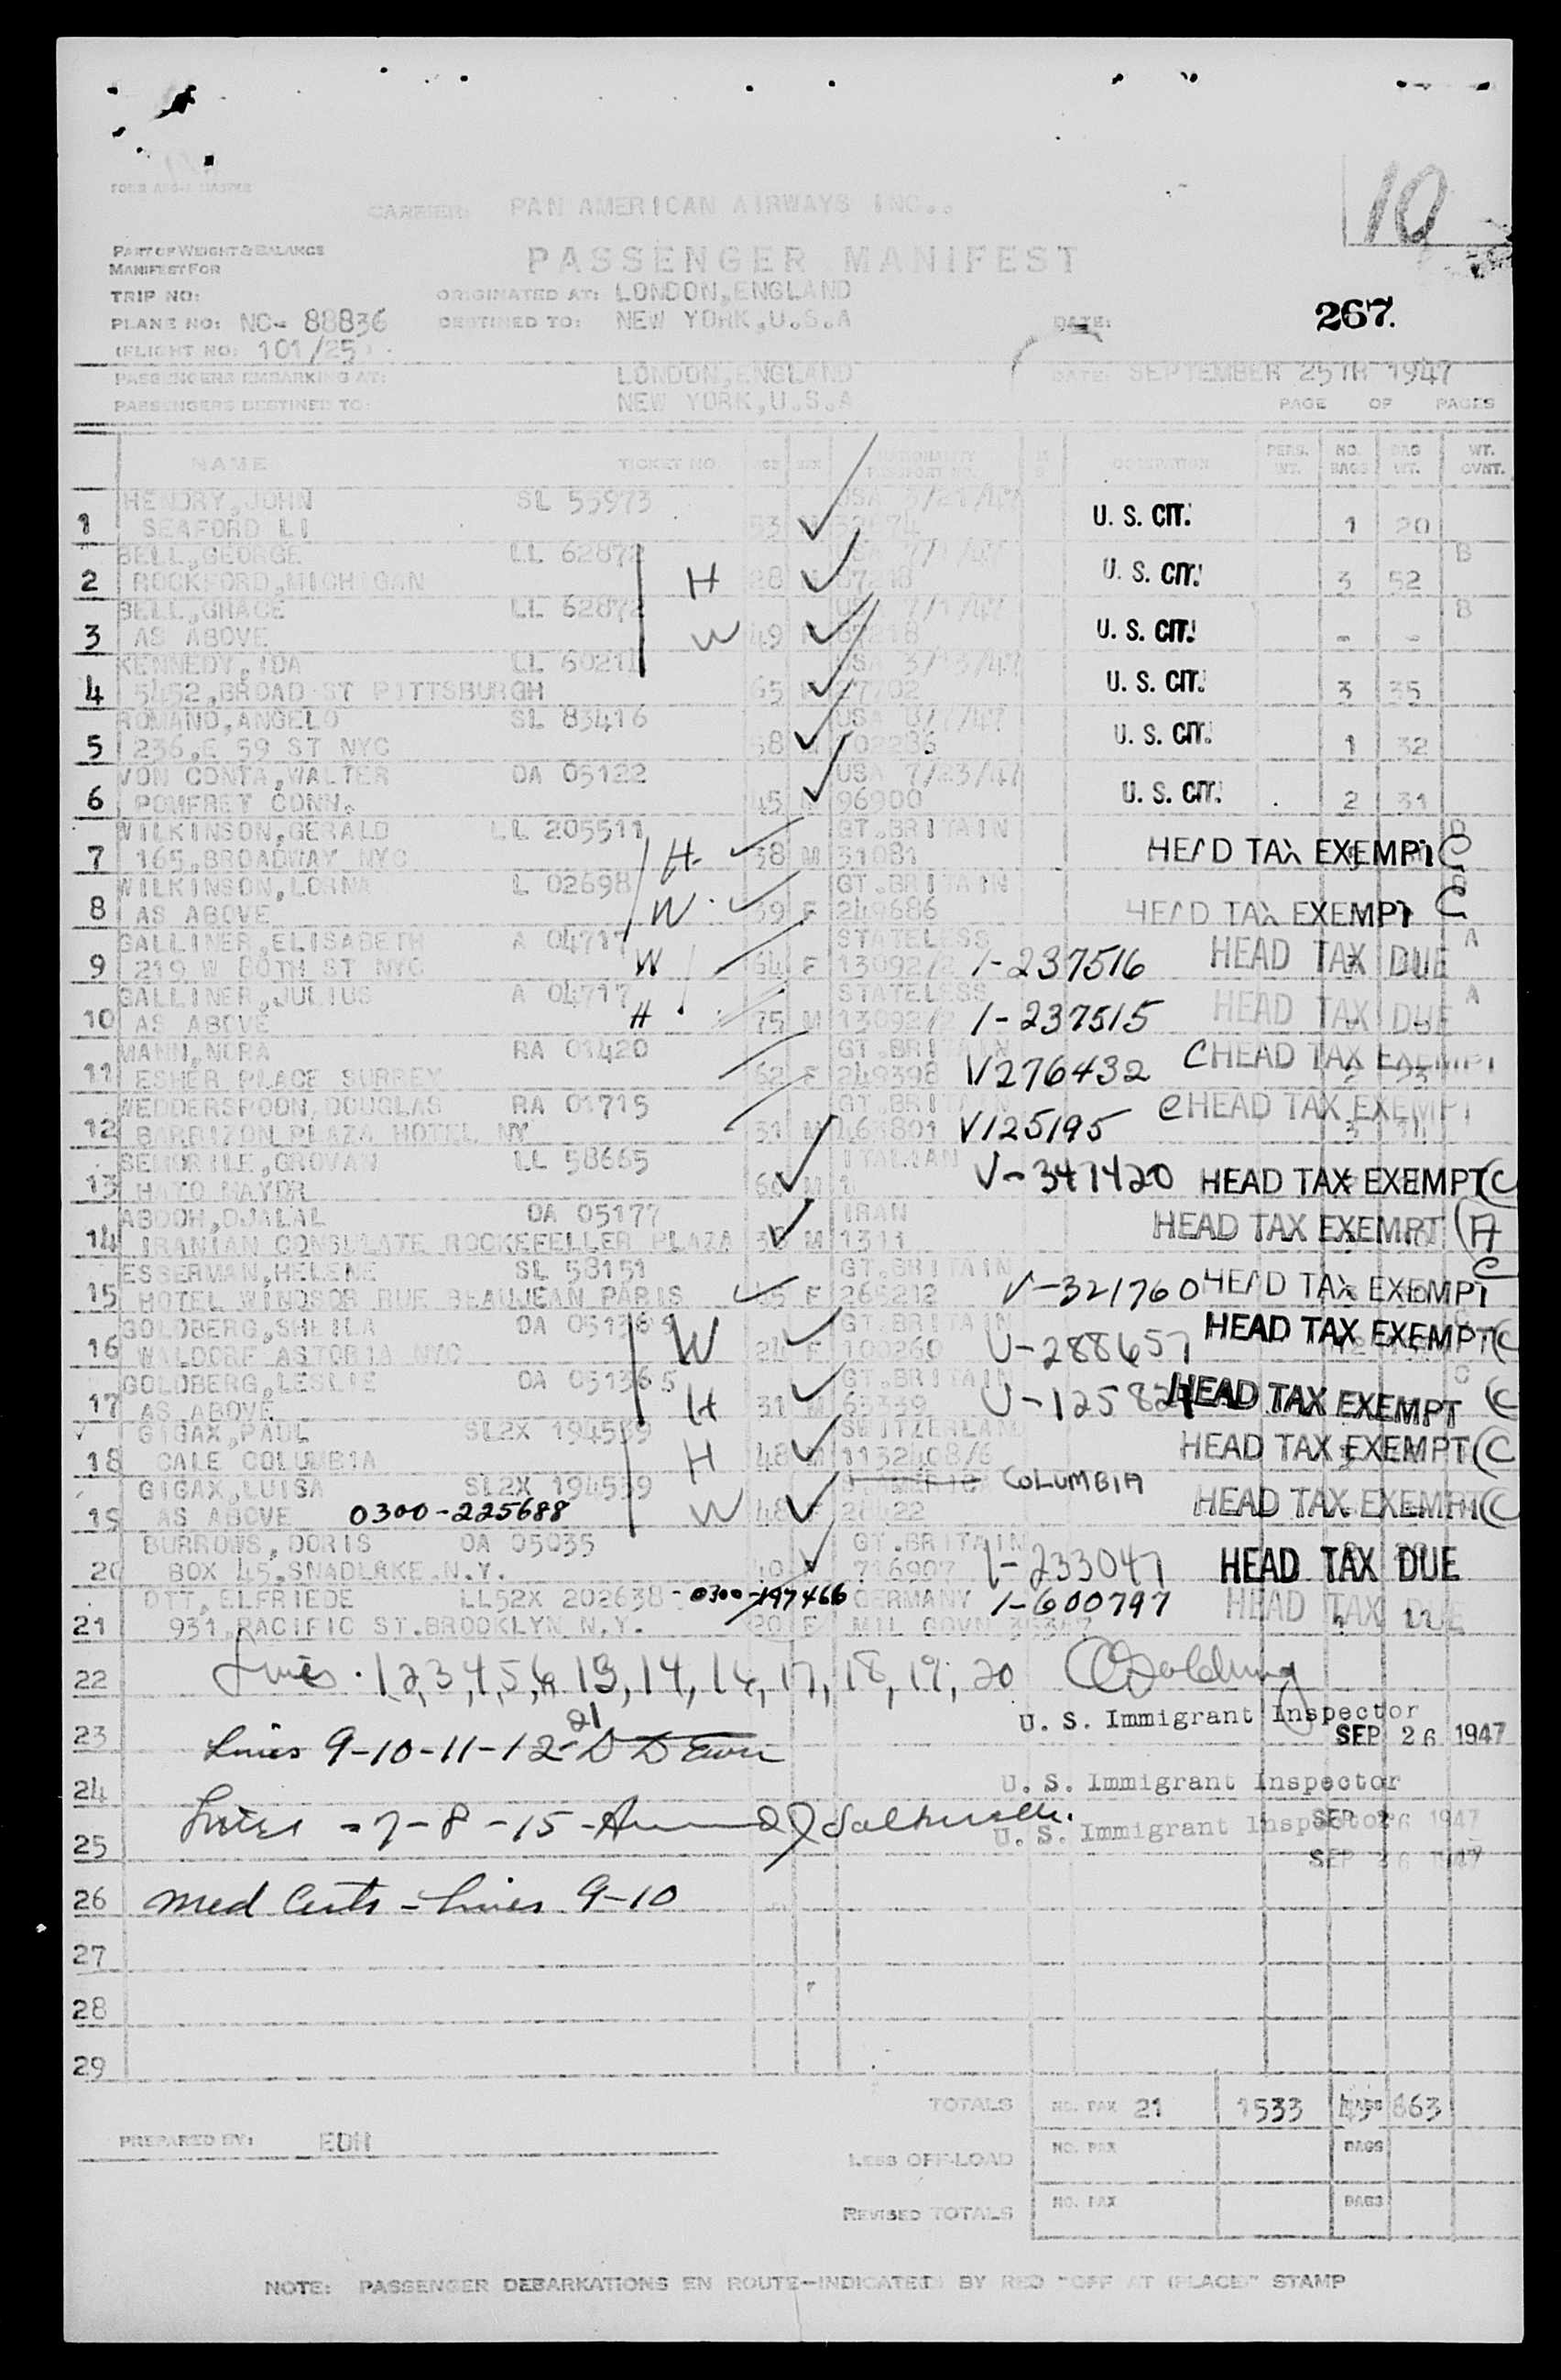 FORM
10
CARRIER: PAN AMERICAN AIRWAYS INC..
PART OF WEIGHT & BALANCE
MANIFEST FOR
PASSENGER MANIFEST
TRIP NO:
ORIGINATED AT: LONDON,ENGLAND
267.
PLANE NO: NC- 88836
DESTINED TO: NEW YORK,U.S.A
DATE:
(FLIGHT NO: 101/25)
PASSENGERS EMBARKING AT: LONDON,ENGLAND
DATE: SEPTEMBER 25TH 1947
PASSENGERS DESTINED TO: NEW YORK,U.S.A
PAGE OF PAGES
NAME TICKET NO. AGE SEX NATIONALITY PASSPORT NO. OCCUPATION PERS. WT. NO. BAGS BAG WT. WT. CVNT.
HENDRY,JOHN SL 55973 USA
1 SEAFORD LI 53 U. S. CIT. 1 20
BELL,GEORGE LL 62872 USA 7/1/47 B
2 ROCKFORD,MICHIGAN H 28 U. S. CIT. 3 52
BELL,GRACE LL 62872 USA 7/1/47 B
3 AS ABOVE W 49 U. S. CIT. - -
KENNEDY,IDA LL 60211 USA 3/13/47
4 5452,BROAD ST PITTSBURGH 65 27702 U. S. CIT. 3 35
ROMANO,ANGELO SL 83416 USA
5 236,E 59 ST NYC 58 M U. S. CIT. 1 32
VON CONTA,WALTER OA 05122 USA 7/23/47
6 POMFRET CONN. 45 M 96900 U. S. CIT. 2 31
WILKINSON,GERALD LL 205511 GT.BRITAIN B
7 165,BROADWAY NYC H 38 M 31081 HEAD TAX EXEMPT C
WILKINSON,LORNA L 02698 GT.BRITAIN B
8 AS ABOVE W 39 F 249686 HEAD TAX EXEMPT C
GALLINER,ELISABETH A 04717 STATELESS A
9 219 W 80TH ST NYC W 64 F 13092/2 1-237516 HEAD TAX DUE
GALLINER,JULIUS A 04717 STATELESS A
10 AS ABOVE H 75 M 13092/2 1-237515 HEAD TAX DUE
MANN,NORA RA 01420 GT.BRITAIN
11 ESHER PLACE SURREY 62 F 249398 V276432 C HEAD TAX EXEMPT
WEDDERSPOON,DOUGLAS RA 01715 GT.BRITAIN
12 BARBIZON PLAZA HOTEL NY 31 M 463801 V125195 C HEAD TAX EXEMPT
SEMORILE,GROVAN LL 58665 ITALIAN
13 HATO MAYOR M V-347420 HEAD TAX EXEMPT C
ABDOH,DJALAL OA 05177 IRAN
14 IRANIAN CONSULATE ROCKEFELLER PLAZA M 1311 HEAD TAX EXEMPT A
ESSERMAN,HELENE SL 58151 GT.BRITAIN C
15 HOTEL WINDSOR RUE BEAUJEAN PARIS F 265212 V-321760 HEAD TAX EXEMPT
GOLDBERG,SHEILA OA 051365 GT.BRITAIN
16 WALDORF ASTORIA NYC W 24 F 100260 V-288657 HEAD TAX EXEMPT C
GOLDBERG,LESLIE OA 051365 GT.BRITAIN C
17 AS ABOVE H 31 M 65339 V-125824 HEAD TAX EXEMPT C
GIGAX,PAUL SL2X 194559 SWITZERLAND
18 CALE COLUMBIA H 48 M 1132408/6 HEAD TAX EXEMPT C
GIGAX,LUISA SL2X 194559 COLUMBIA
19 AS ABOVE 0300-225688 W 48 F 26422 HEAD TAX EXEMPT C
BURROWS,DORIS OA 05035 GT.BRITAIN
20 BOX 45,SNADLAKE.N.Y. 40 716907 1-233047 HEAD TAX DUE
OTT,ELFRIEDE LL52X 202638 - 0300-197466 GERMANY 1-600797
21 931,PACIFIC ST.BROOKLYN N.Y. 20 F MIL GOVN HEAD TAX DUE
22 Lines · 1,2,3,4,5,6, 13, 14, 16, 17, 18, 19, 20
U. S. Immigrant Inspector
SEP 26 1947
23 Lines 9-10-11-12-21
24 U. S. Immigrant Inspector
SEP 26 1947
25 Lines - 7-8-15 -
U. S. Immigrant Inspector
SEP 26 1947
26 Med Certs - Lines 9-10
27
28
29
TOTALS NO. PAX 21 1533 BAGS 863
PREPARED BY: EDH
LESS OFF-LOAD NO. PAX BAGS
REVISED TOTALS NO. PAX BAGS
NOTE: PASSENGER DEBARKATIONS EN ROUTE-INDICATED BY RED "OFF AT (PLACE)" STAMP